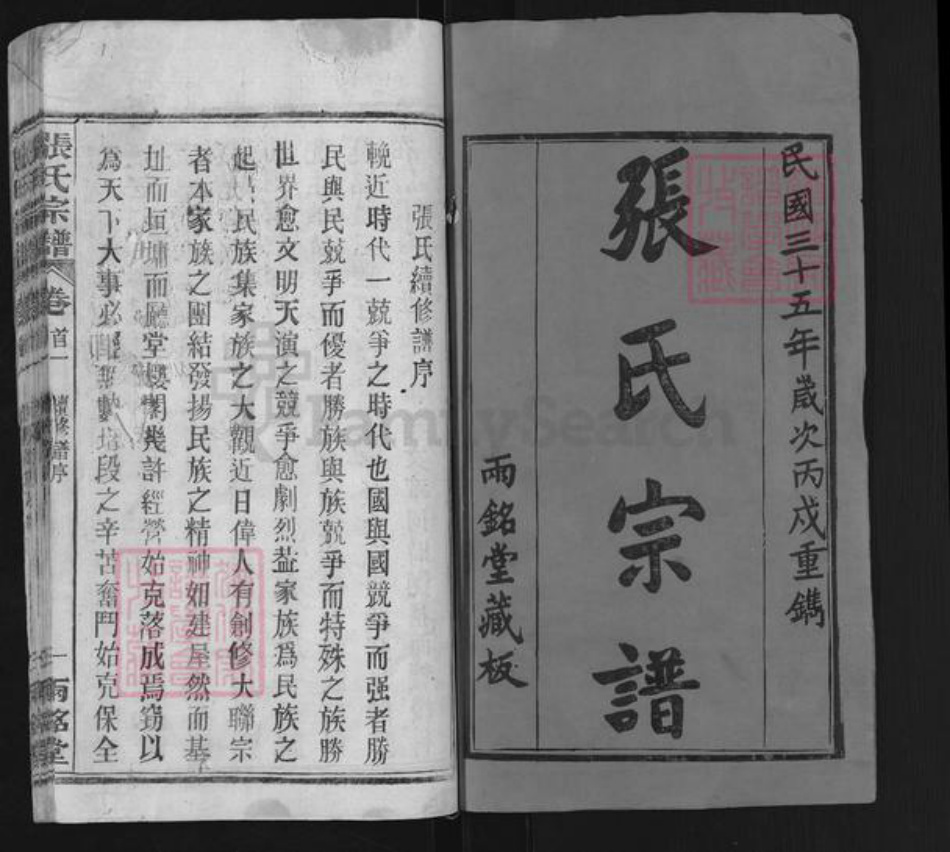 民國三十五年歲次丙戍重鐫
張氏宗譜
雨銘堂藏板
張氏續修譜序
輓近時代一競爭之時代也國與國競爭而强者勝
民與民競爭而優者勝族與族競爭而特殊之族勝
世界愈文明天演之競爭愈劇烈葢家族爲民族之
起民族集家族之大觀近日偉人有創修大聯宗
者本家族之團結發揚民族之精神如建屋然而基
址而垣墉而廳堂樓閣幾許經營始克落成焉窃以
爲天下大事必段之辛苦奮鬥始克保全
張氏宗譜
卷首一
續修譜序
一
雨銘堂
FamilySearch